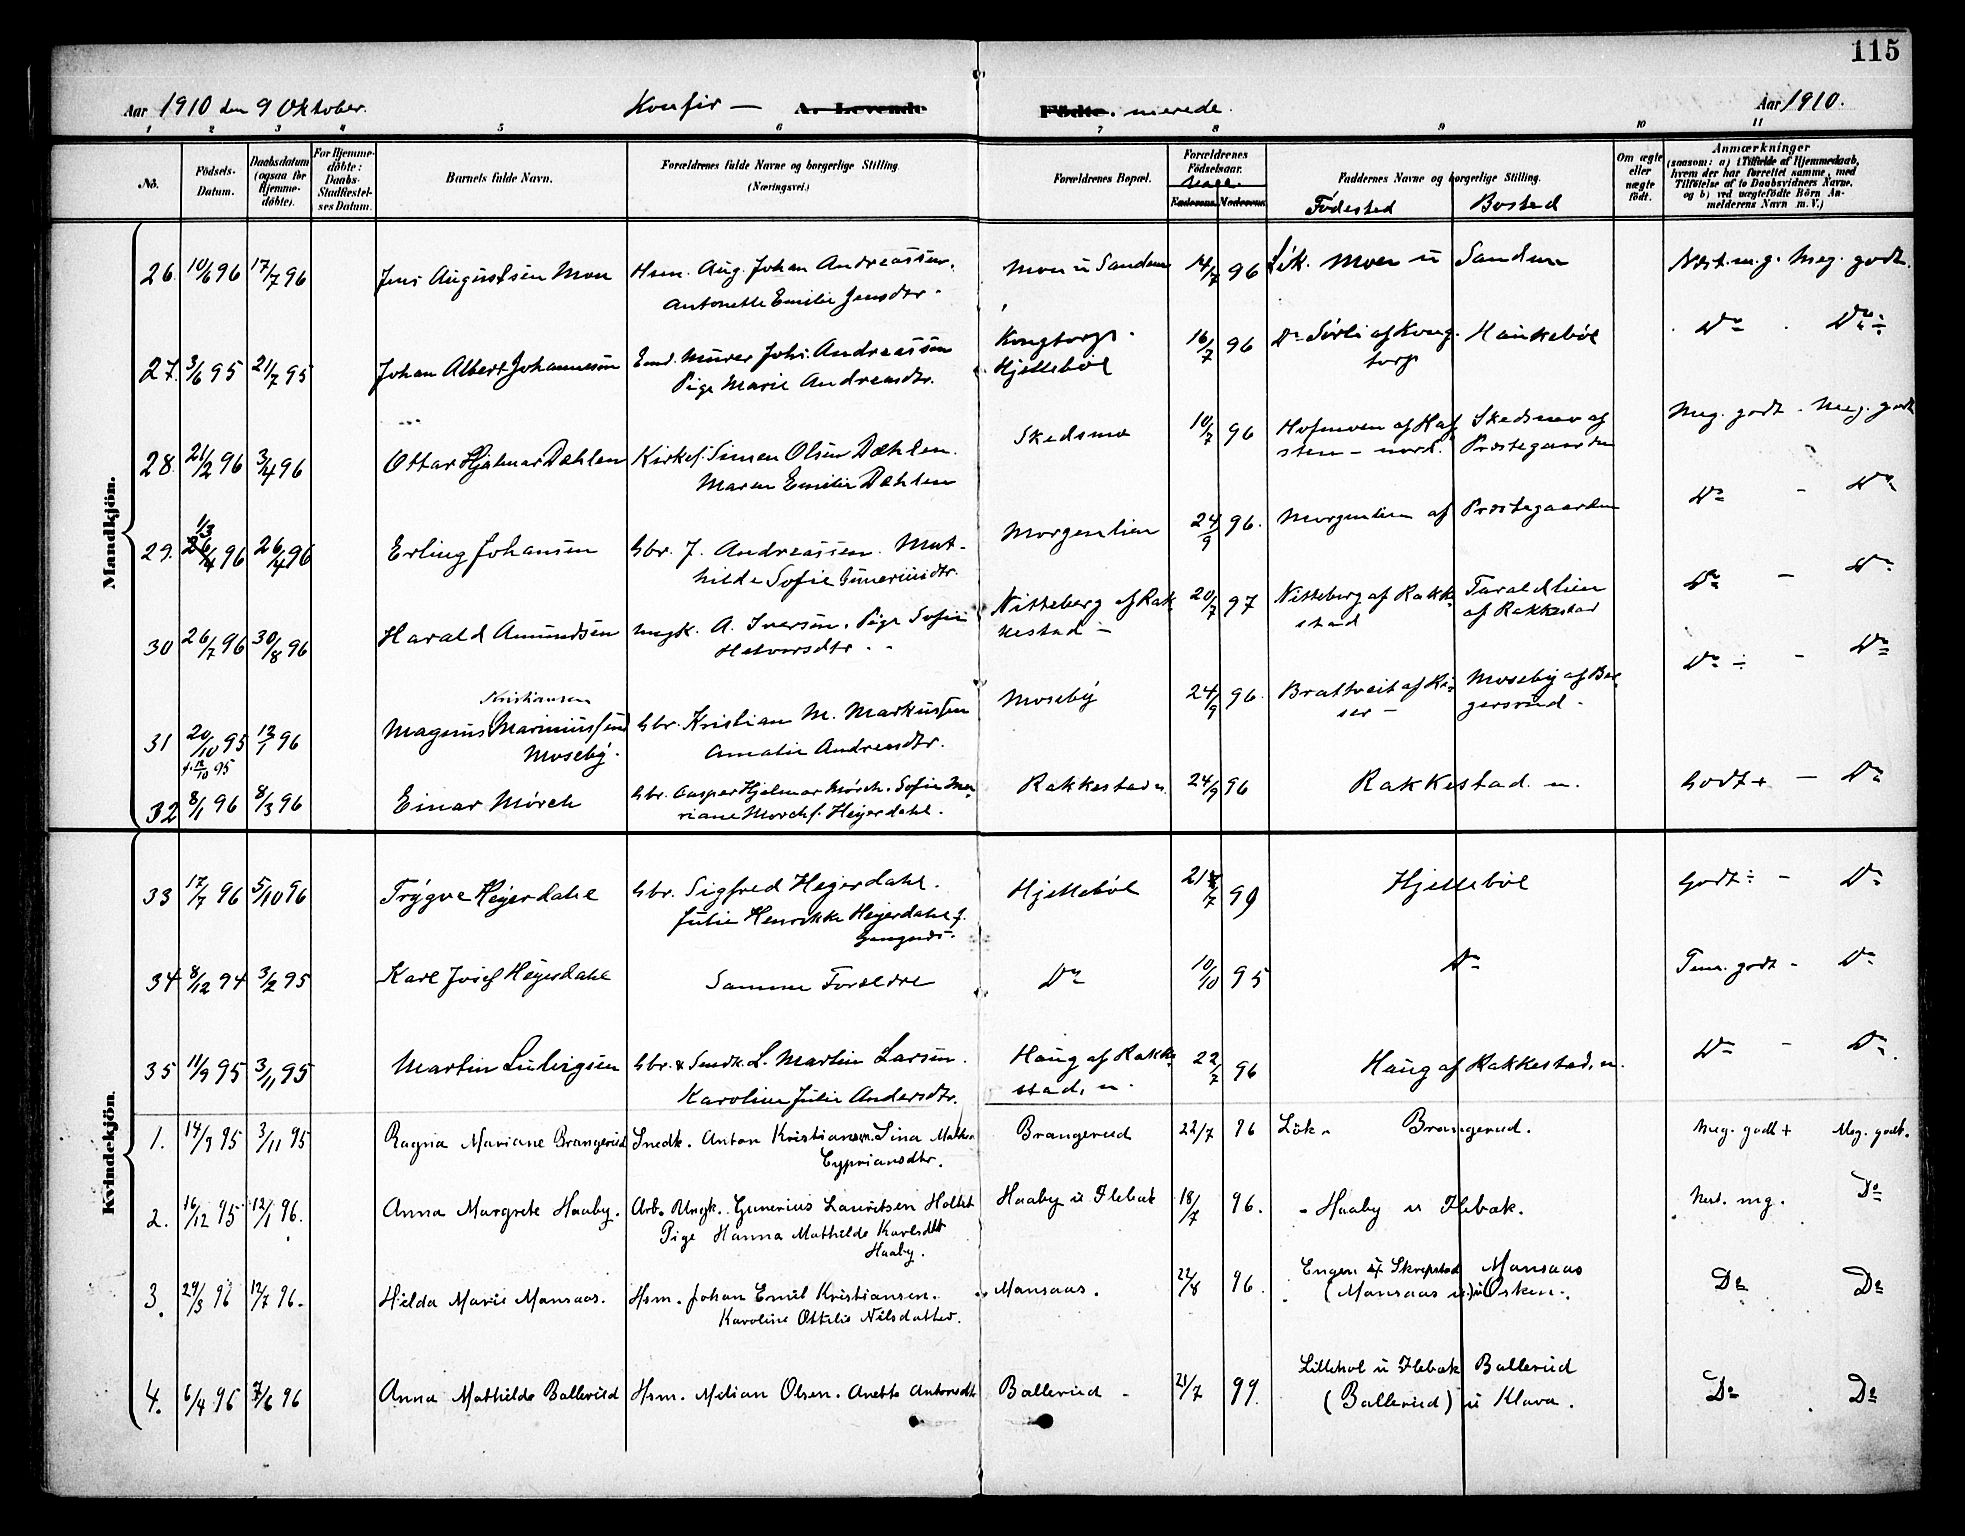 115
Aar 1910 den 9 Oktober. Konfir — A. Levende Födte. merede. Aar 1910.
1 2 3 4 5 6 7 8 9 10 11
No. Födsels-Datum. Daabsdatum (ogsaa for Hjemme-döbte). For Hjemme-döbte: Daabs-Stadfæstel-ses Datum. Barnets fulde Navn. Forældrenes fulde Navne og borgerlige Stilling. (Næringsvei.) Forældrenes Bopæl. Forældrenes Födselsaar. Faderens. Moderens. Faddernes Navne og borgerlige Stilling. Födested Bosted Om ægte eller uægte födt. Anmærkninger
(saasom: a) i Tilfælde af Hjemmedaab, hvem der har forrettet samme, med Tilföielse af to Daabsvidners Navne, og b) ved uægtefödte Börn An-melderens Navn m. V.)
Mandkjön.
26. 10/6 96 17/7 96 Jens Augustsen Moen Hsm. Aug. Johan Andreassen. Moen u Sandem 14/7 96 Lök. Moen u Sandem Næst. m. g. Meg. godt.
Antonette Emilie Jensdtr.
27. 3/6 95 21/7 95 Johan Albert Johannesen Emd. Murer Johs. Andreassen Kongtorp. 16/7 96 Do Sörli af Kong- Haukeböl Do Do ÷
Pige Marie Andreasdtr. Hjelleböl torp
28. 21/2 96 3/4 96 Ottar Hjalmar Dæhlen Kirkes. Simen Olsen Dæhlen. Skedsmo 10/7 96 Hofmoen af Haf- Skedsmo af Meg. godt - Meg. godt
Maren Emilie Dæhlen sten - nord. Prestegaarden
29. 1/3 26/4 96 26/4 96 Erling Johansen Gbr. J. Andreassen. Mat- Morgenlien 24/9 96. Morgenlien af Prestegaarden Do - Do
hilde Sofie Guneriusdtr.
30 26/7 96 30/8 96 Harald Amundsen Ungk. A. Iversen. Pige Sofie Nitteberg af Rak- 20/7 97 Nitteberg af Rakke- Taraldlien Do - Do
Halvorsdtr. kestad - stad af Rakkestad
Kristiansen
31 20/10 95 12/1 96 Magnus Marinius Gbr. Kristian M. Markussen Moseby 24/9 96. Brattveit af Kj- Moseby af Ber- Do ÷ - Do
f. 12/10 95 Moseby. Amalie Andreasdtr. ser - gersrud -
32 8/1 96 8/3 96 Einar Mörch Gbr. Casper Hjalmar Mörch. Sofie Ma- Rakkestad n. 24/9 96 Rakkestad. n. Godt + - Do
riane Mörch f. Heyerdahl.
33 17/7 96 5/10 96 Trygve Heyerdahl Gbr. Sigfred Heyerdahl. Hjelleböl 21/7 99 Hjelleböl Godt ÷ - Do
Julie Henrikke Heyerdahl f.
34 8/12 94 3/2 95 Karl Josef Heyerdahl Samme Forældre Do 10/10 95 Do Tem. godt - Do
35 11/9 95 3/11 95 Martin Ludvigsen Gbr. & Smedk. L. Martin Larsen. Haug af Rakke- 22/7 96 Haug af Rakkestad. n. Do - Do
Karoline Julie Andersdtr. stad. n.
Kvindekjön.
1. 14/9 95 3/11 95 Ragna Mariane Brangerud Snedk. Anton Kristiansen. Lina Math. Brangerud 22/7 96 Lök. Brangerud. Meg. godt + Meg. godt.
Cypriansdtr.
2. 16/12 95 12/1 96. Anna Margrete Haaby. Arb. Ungk. Gunerius Lauritsen Holtet Haaby u Flebæk 18/7 96. - Haaby u Flebæk. Nest. mg. Do
Pige Hanna Mathilde Karlsdtr
Haaby.
3. 29/3 96 12/7 96. Hilda Marie Mansaas. Hsm. Johan Emil Kristiansen. Mansaas. 22/8 96. Engen u Skrepstad Mansaas Do Do
Karoline Ottilie Nilsdatter. (Mansaas u.) u Osken.
4. 6/4 96 7/6 96 Anna Mathilde Ballerud Hsm. Milian Olsen. Anette Antonsdtr Ballerud - 21/7 99. Lillehol u Flebæk Ballerud Do Do
(Ballerud) u Klava.